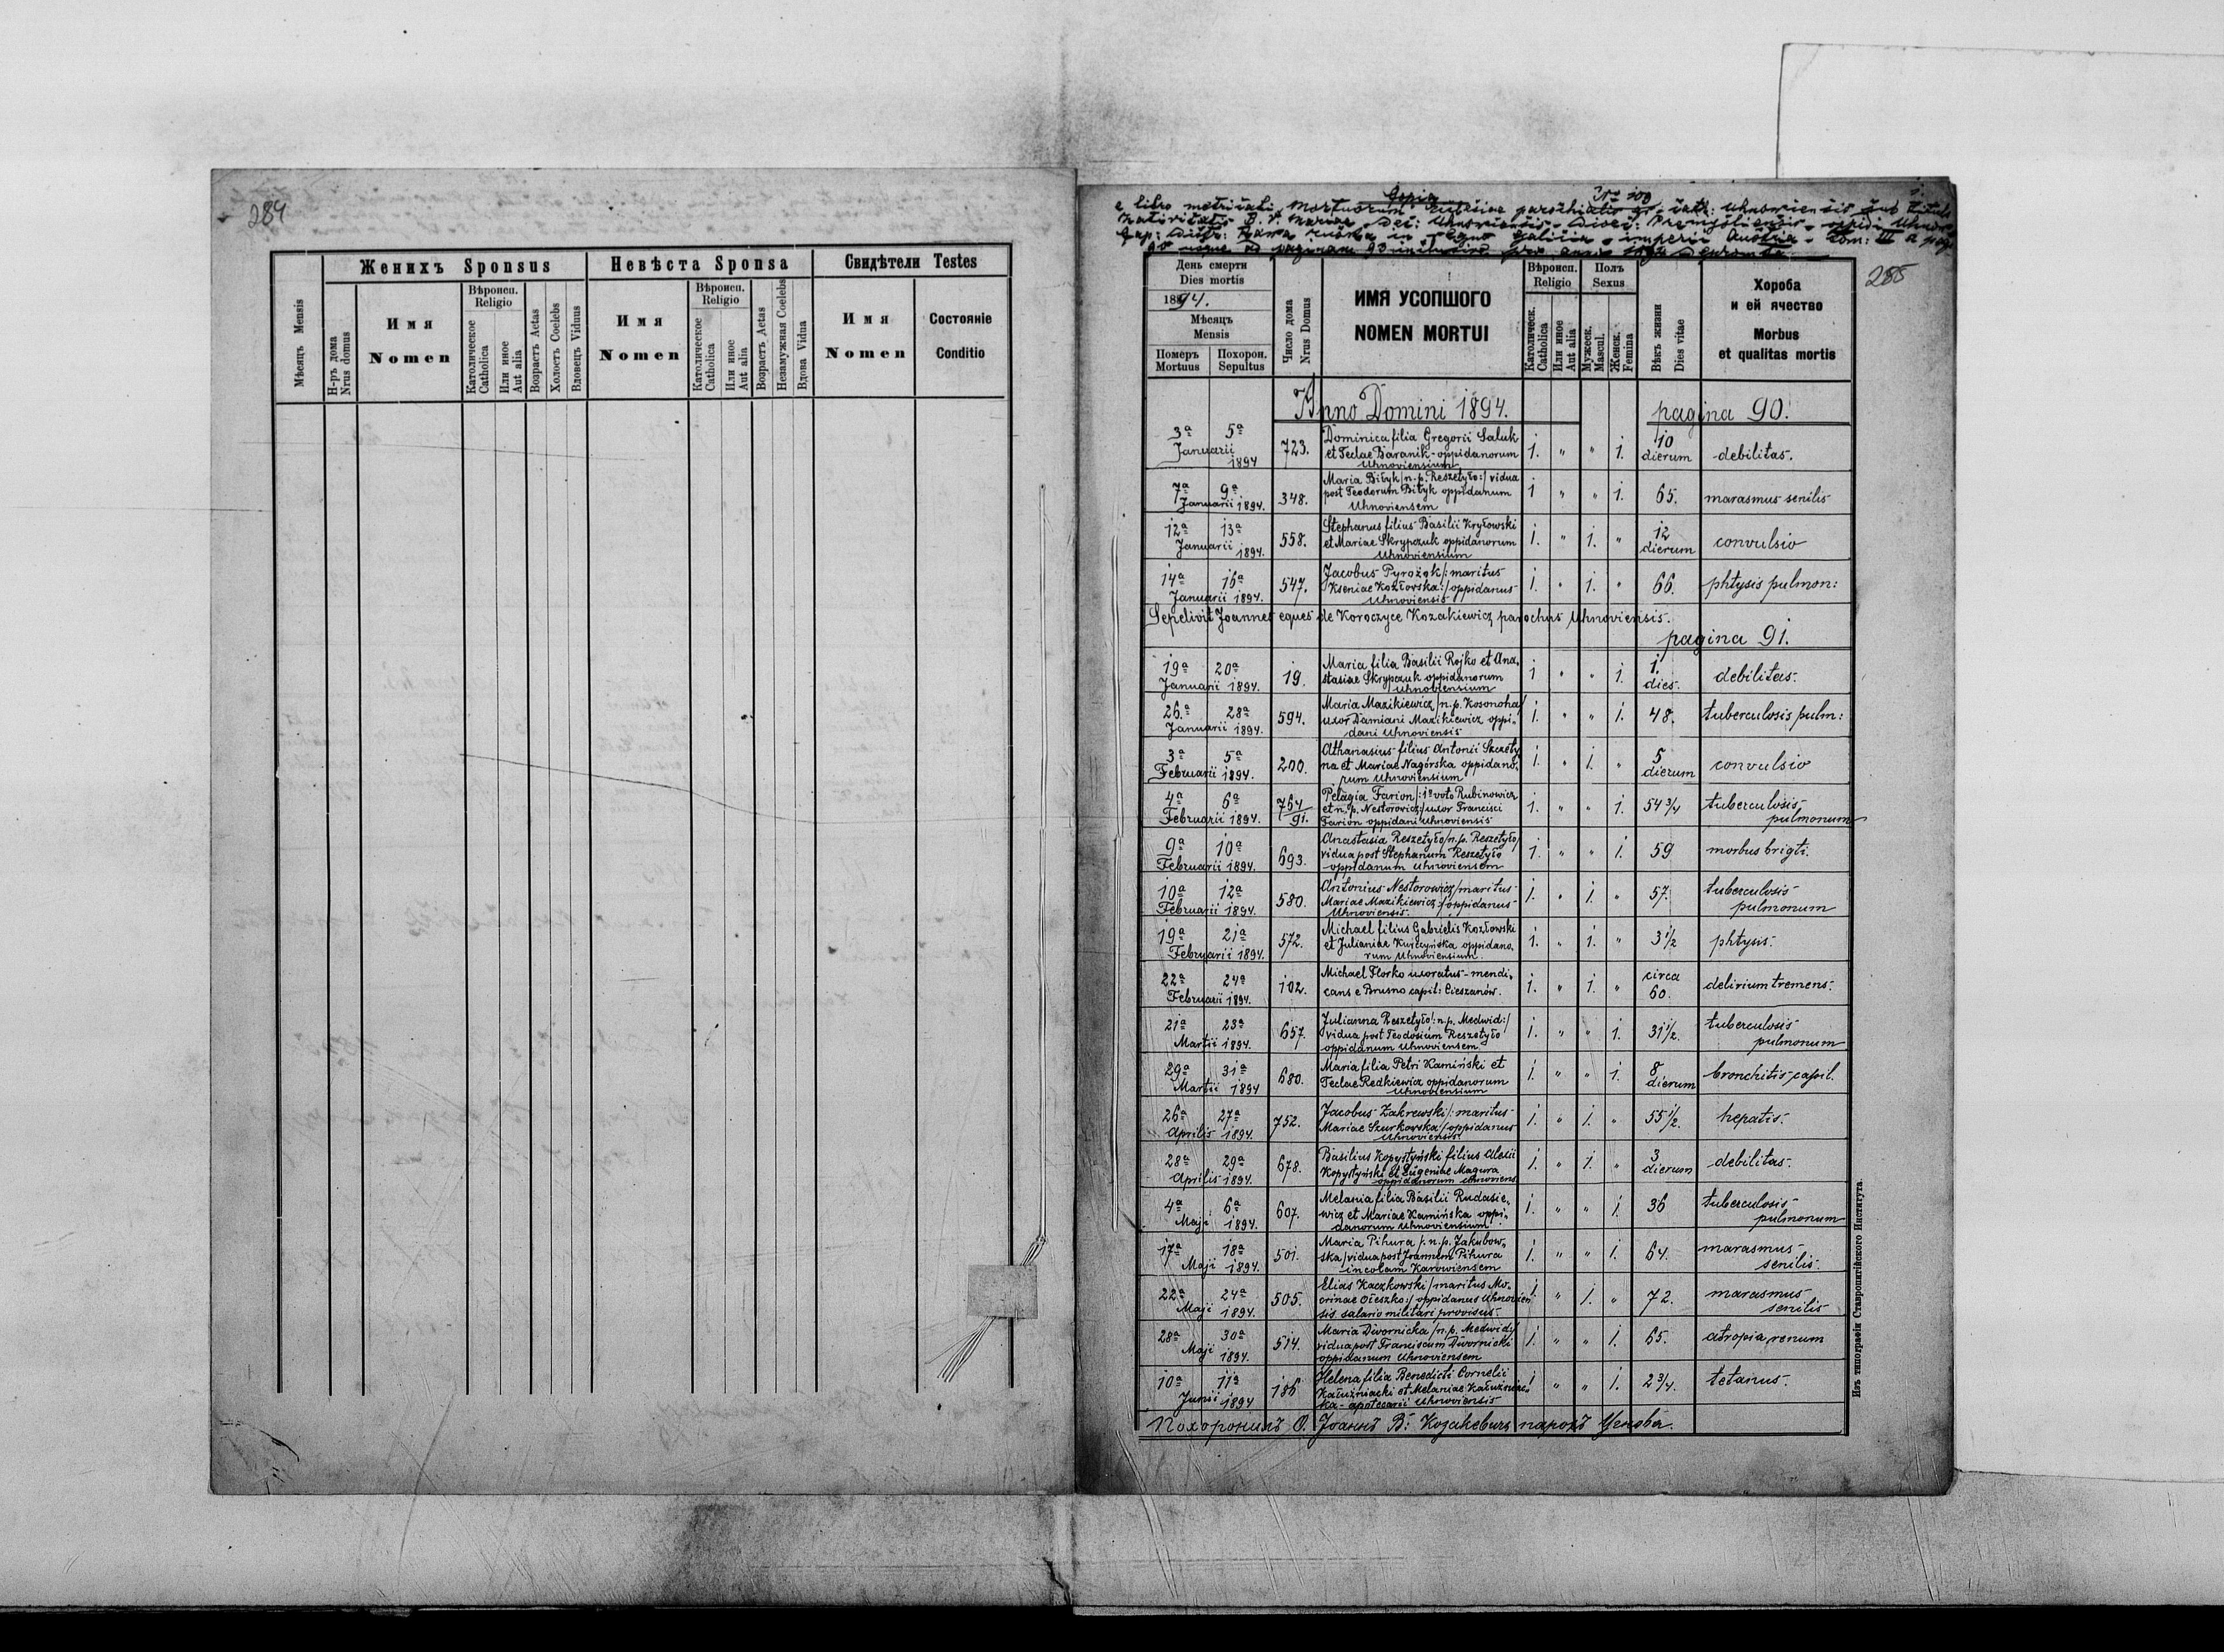 284
Женихъ Sponsus
Невѣста Sponsa
Свидѣтели Testes
Мѣсяцъ Mensis
Н-ръ дома Nrus domus
Имя Nomen
Вѣроисп. Religio
Католическое Catholica
Или иное Aut alia
Возрастъ Aetas
Холостъ Coelebs
Вдовецъ Viduus
Имя Nomen
Вѣроисп. Religio
Католическое Catholica
Или иное Aut alia
Возрастъ Aetas
Незамужная Coelebs
Вдова Vidua
Имя Nomen
Состояніе Conditio
Copia Nro 100
e libro metricali mortuorum ecclesiae parochialis gr. cath: Uhnoviensis sub titulo
Nativitatis B. V. Mariae, Dec: Uhnoviensis, Dioec: Premysliensis, oppidi Uhnów
Cap: distr: Rawa ruska in regno Galiciae, imperii Austriae, Tom: III a pag.
90 usque ad paginam 93 inclusive pro anno 1894 deprompta
285
День смерти
Dies mortis
1894.
Мѣсяцъ
Mensis
Померъ Mortuus
Похорон. Sepultus
Число дома Nrus Domus
ИМЯ УСОПШОГО
NOMEN MORTUI
Вѣроисп. Religio
Католическ. Catholica
Или иное Aut alia
Полъ Sexus
Мужеск. Mascul.
Женск. Femina
Вѣкъ жизни Dies vitae
Хороба
и ей ячество
Morbus
et qualitas mortis
Anno Domini 1894. pagina 90.
3a 5a Januarii 1894 723. Dominica filia Gregorii Saluk
et Teclae Baranik - oppidanorum
Uhnoviensium 1. " " 1. 10 dierum debilitas.
7a 9a Januarii 1894. 348. Maria Biłyk /n. p. Reszetyło:/ vidua
post Teodorum Biłyk oppidanum
Uhnoviensem 1 " " 1. 65. marasmus senilis
12a 13a Januarii 1894. 558. Stephanus filius Basilii Kryłowski
et Mariae Skrypczuk oppidanorum
Uhnoviensium 1. " 1. " 12 dierum convulsio
14a 16a Januarii 1894. 547. Jacobus Pyrożok /: maritus
Kseniae Kozłowska:/ oppidanus
Uhnoviensis 1. " 1. " 66. phtysis pulmon:
Sepelivit Joannes eques de Koroczyce Kozakiewicz parochus Uhnoviensis.
pagina 91.
19a 20a Januarii 1894. 19. Maria filia Basilii Rojko et Ana-
stasiae Skrypczuk oppidanorum
Uhnoviensium 1 " " 1. 1. dies. debilitas.
26.a 28a Januarii 1894. 594. Maria Mazikiewicz /n. p. Kosonoha/
uxor Damiani Mazikiewicz oppi-
dani Uhnoviensis 1. " " 1. 48. tuberculosis pulm:
3a 5a Februarii 1894. 200. Athanasius filius Antonii Szczety
na et Mariae Nagórska oppidano-
rum Uhnoviensium 1. " 1. " 5 dierum convulsio
4a 6a Februarii 1894. 764/91. Pelagia Farion /: 1o voto Rubinowicz
et n. p. Nestorowicz:/ uxor Francisci
Farion oppidani Uhnoviensis 1. " " 1. 54 3/4 tuberculosis
pulmonum
9a 10a Februarii 1894. 693. Anastasia Reszetyło /n. p. Reszetyło/
vidua post Stephanum Reszetyło
oppidanum Uhnoviensem 1. " " 1. 59 morbus brigti.
10a 12a Februarii 1894. 580. Antonius Nestorowicz /maritus
Mariae Mazikiewicz:/ oppidanus
Uhnoviensis. 1. " 1. " 57. tuberculosis
pulmonum
19a 21a Februarii 1894. 572. Michael filius Gabrielis Kozłowski
et Julianiae oppidano-
rum Uhnoviensium. 1. " 1. " 3 1/2 phtysis.
22a 24a Februarii 1894. 102. Michael Florko uxoratus - mendi-
cans e Brusno capit: Cieszanów. 1. " 1. " circa 60. delirium tremens.
21a 23a Martii 1894. 657. Julianna Reszetyło /: n. p. Medwid:/
vidua post Teodosium Reszetyło
oppidanum Uhnoviensem. 1. " " 1. 31 1/2. tuberculosis
pulmonum
29a 31a Martii 1894 680. Maria filia Petri Kamiński et
Teclae Redkiewicz oppidanorum
Uhnoviensium 1. " " 1. 8 dierum bronchitis capil.
26a 27a Aprilis 1894. 752. Jacobus Zakrewski /: maritus
Mariae Szurkowska:/ oppidanus
Uhnoviensis 1. " 1. " 55 1/2. hepatis.
28a 29a Aprilis 1894. 678. Basilius Kopystyński filius Alexii
Kopystyński et Eugeniae Magura
oppidanorum Uhnoviens 1. " 1. " 3 dierum debilitas.
4a 6a Maji 1894. 607. Melania filia Basilii Rudasie-
wicz et Mariae Kamińska oppi-
danorum Uhnoviensium 1. " " 1. 36 tuberculosis
pulmonum
17a 18a Maji 1894. 501. Maria Pihura /: n. p. Jakubow-
ska/ vidua post Joannem Pihura
incolam Karowiensem 1. " " 1. 64. marasmus
senilis.
22a 24a Maji 1894. 505. Elias Kaczkowski /maritus Ma-
crinae Oleszko:/ oppidanus Uhnovien
sis salario militari provisus. 1. " 1. " 72. marasmus
senilis
28a 30a Maji 1894. 514. Maria Dwornicka /n. p. Medwid:/
vidua post Franciscum Dwornicki
oppidanum Uhnoviensem 1. " " 1. 65. atropia renum
10a 11a Junii 1894 186 Helena filia Benedicti Cornelii
Kałużniacki et Melaniae Kałużniac-
ka - apotecarii Uhnoviensis 1 " " 1. 2 3/4. tetanus.
Похоронилъ О. Іоаннъ В: Козакевичъ парохъ Угнова.
Изъ типографіи Ставропигійского Института.